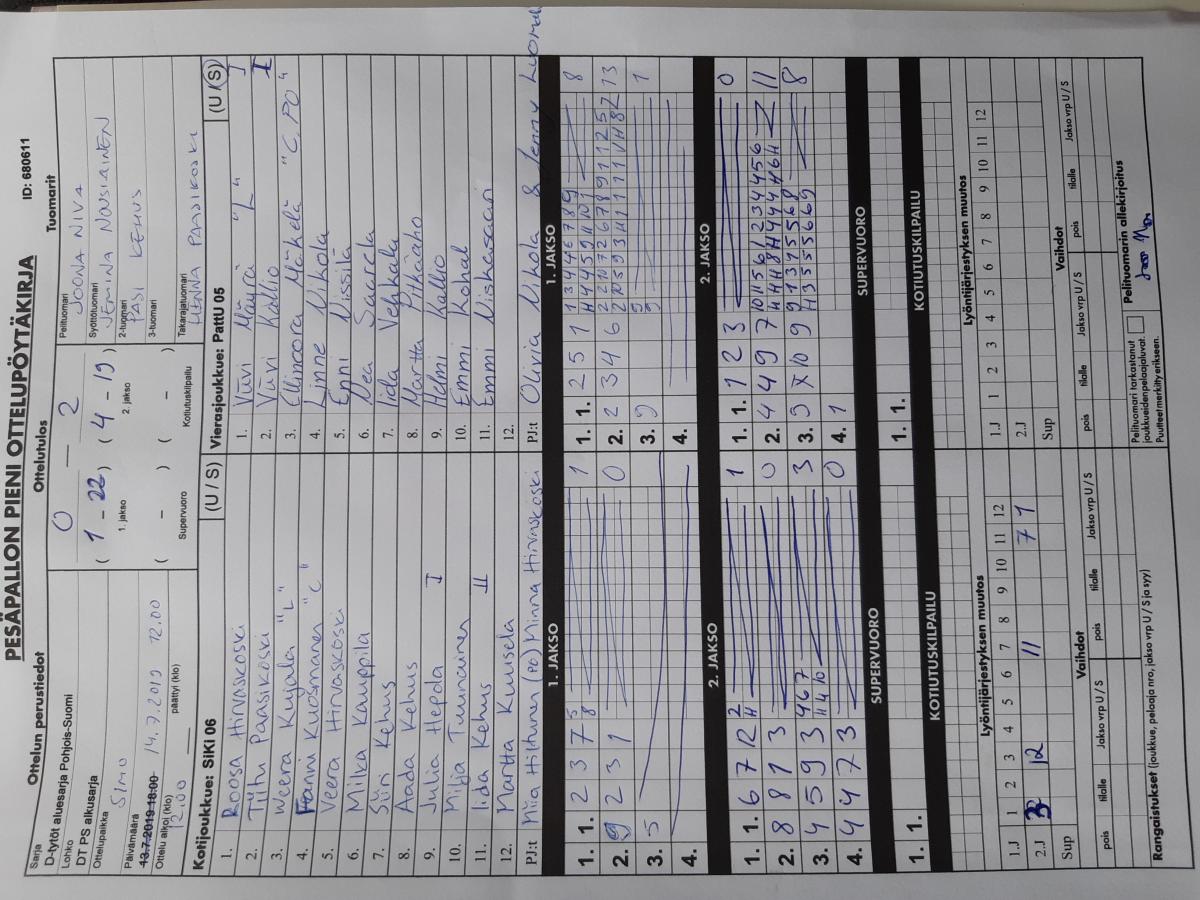 PESÄPALLON PIENI OTTELUPÖYTÄKIRJA
ID: 680611
Ottelun perustiedot
Ottelutulos
Tuomarit
Sarja
D-tytöt aluesarja Pohjois-Suomi
Lohko
DT PS alkusarja
Ottelupaikka
SIMO
Päivämäärä
13.7.2019 18:00 14.7.2019 12.00
Ottelu alkoi (klo) päättyi (klo)
12.00
0 — 2
( 1 - 22 ) ( 4 - 19 )
1. jakso 2. jakso
( - ) ( - )
Supervuoro Kotiutuskilpailu
Pelituomari
JOONA NIVA
Syöttötuomari
JEMINA NOUSIAINEN
2-tuomari
PASI KEHUS
3-tuomari
Takarajatuomari
HENNA PAASIKOSKI
Kotijoukkue: SiKi 06 (U / S)
1. Roosa Hirvaskoski
2. Tytti Paasikoski
3. Weera Kujala "L"
4. Fanni Kuosmanen "C"
5. Veera Hirvaskoski
6. Milka Kauppila
7. Siiri Kehus
8. Aada Kehus
9. Julia Hepola I
10. Milja Tuunainen
11. Iida Kehus II
12. Martta Kuusela
PJ:t Miia Hiltunen (PO) Minna Hirvaskoski
Vierasjoukkue: PattU 05 (U / S)
1. Viivi Määrä "L" I
2. Viivi Kallio I
3. Ellinoora Mäkelä "C, PO"
4. Linne Vikola
5. Enni Nissilä
6. Nea Saarela
7. Iida Vehkala
8. Martta Pitkäaho
9. Helmi Kallio
10. Emmi Kohal
11. Emmi Niskasaari
12.
PJ:t Olivia Vikola & Jenny Luoma
1. JAKSO
1. 1. 2 3 7 5 8 1
2. 9 2 3 1 0
3. 5
4.
2. JAKSO
1. 1. 6 7 12 2 H 1
2. 8 8 1 3 0
3. 4 5 9 3 4 6 7 H 4 10 3
4. 4 4 7 3 0
SUPERVUORO
1. 1.
KOTIUTUSKILPAILU
1. JAKSO
1. 1. 2 5 1 8
2. 2 3 4 6 13
3. 9 1
4.
2. JAKSO
1. 1. 1 2 3 0
2. 4 4 9 7 11
3. 9 X 10 9 8
4. 1
SUPERVUORO
1. 1.
KOTIUTUSKILPAILU
Lyöntijärjestyksen muutos
1.J 1 2 3 4 5 6 7 8 9 10 11 12
2.J 3 12 11 7 1
Sup
Vaihdot
pois tilalle Jakso vrp U / S pois tilalle Jakso vrp U / S
Lyöntijärjestyksen muutos
1.J 1 2 3 4 5 6 7 8 9 10 11 12
2.J
Sup
Vaihdot
pois tilalle Jakso vrp U / S pois tilalle Jakso vrp U / S
Rangaistukset (joukkue, pelaaja nro, jakso vrp U / S ja syy)
Pelituomari tarkastanut
joukkueidenpelaajaluvat.
Puutteet merkitty erikseen.
Pelituomarin allekirjoitus